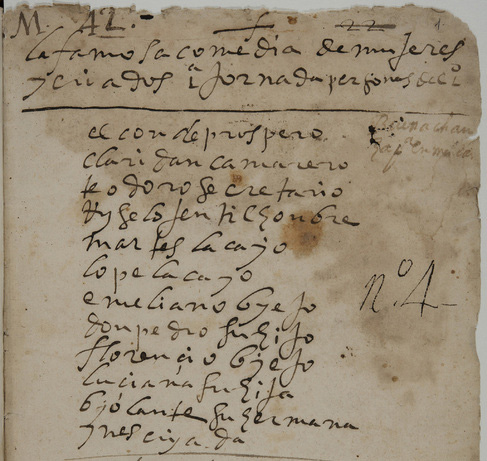 M. 42.-
22
la famosa comedia de mujeres
y criados 1ª Jornada personas della
el conde prospero
claridan camarero
teodoro secretario
tiselo jentilhonbre
martes lacayo
lope lacayo
emeliano byejo
don pedro su hijo
florencio byejo
luciana su hija
byolante su hermana
ynes criyada
nº. 4